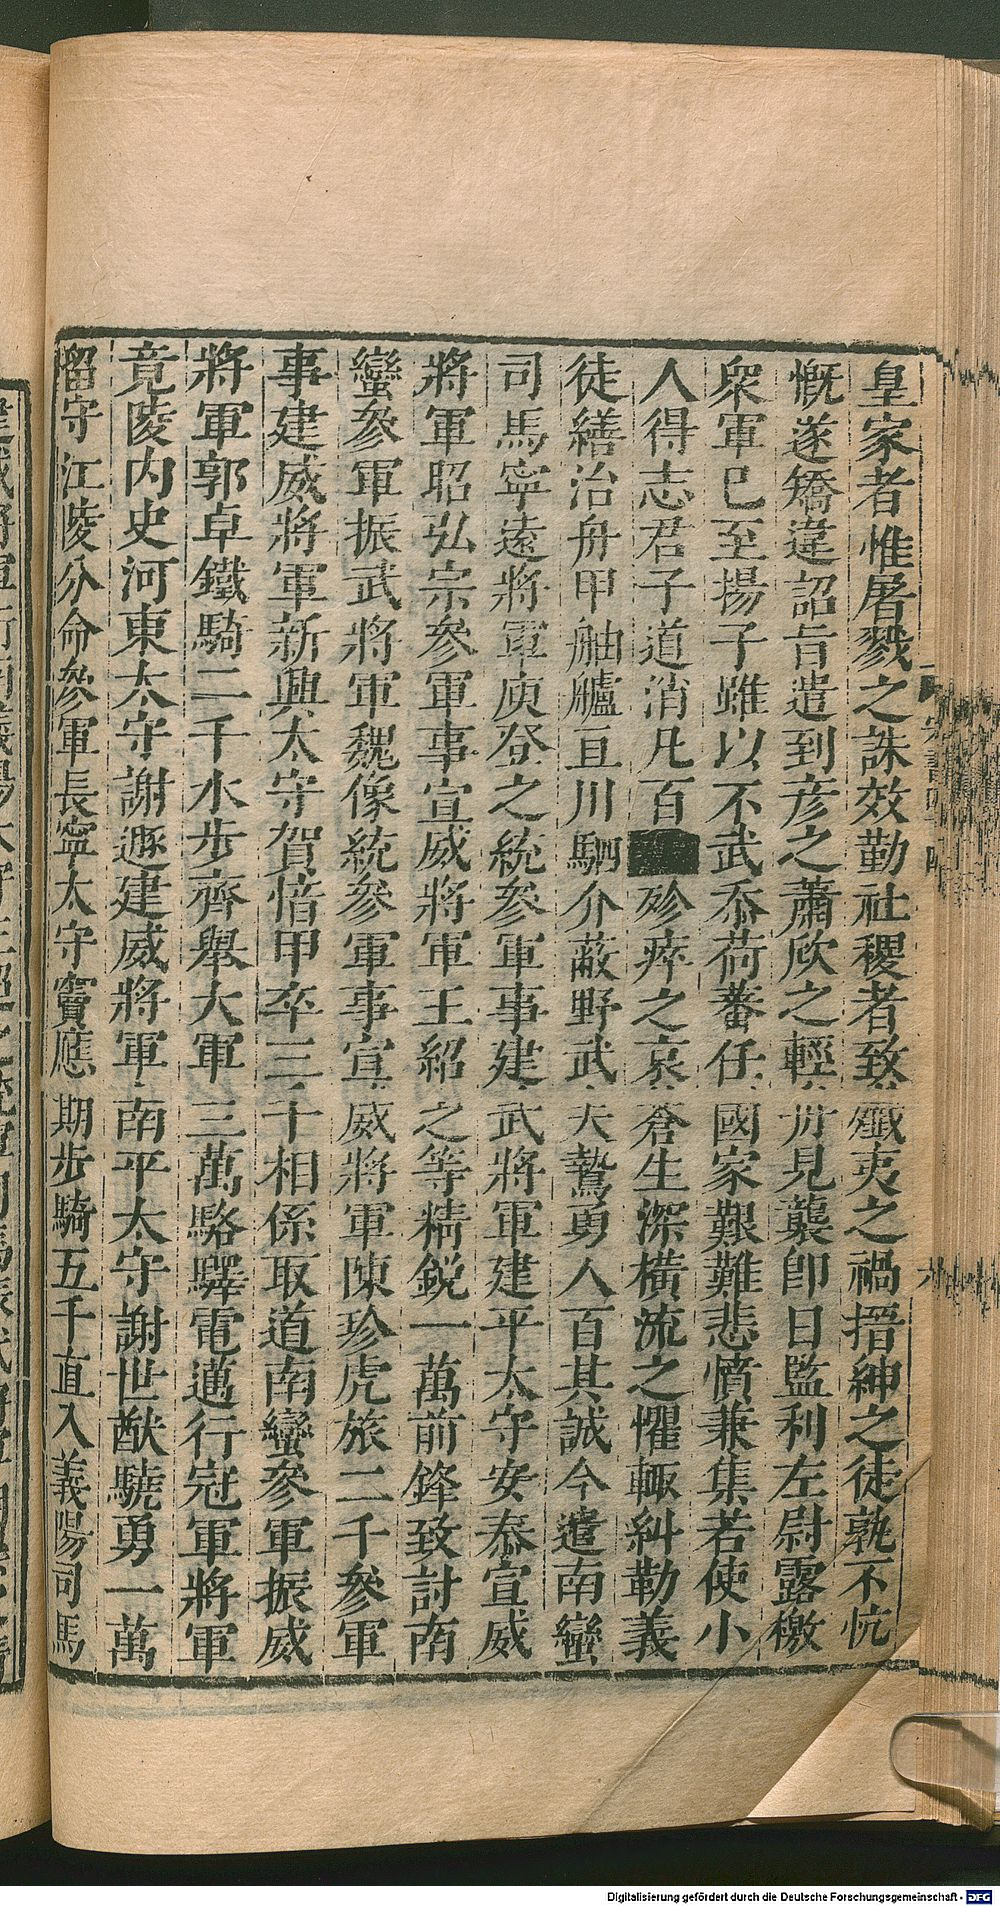 皇家者惟屠戮之誅效勤社稷者致殲夷之禍搢紳之徒孰不忼
慨遂矯違詔旨遣到彥之蕭欣之輕舟見襲即日監利左尉露檄
衆軍已至揚子雖以不武忝荷蕃任國家艱難悲憤兼集若使小
人得志君子道消凡百殄瘁之哀蒼生深橫流之懼輒糾勒義
徒繕治舟甲舳艫亘川駟介蔽野武夫鷙勇人百其誠今遣南蠻
司馬寧遠將軍庾登之統參軍事建武將軍建平太守安泰宣威
將軍昭弘宗參軍事宣威將軍王紹之等精銳一萬前鋒致討南
蠻參軍振武將軍魏像統參軍事宣威將軍陳珍虎旅二千參軍
事建威將軍新興太守賀愔甲卒三千相係取道南蠻參軍振威
將軍郭卓鐵騎二千水步齊舉大軍三萬駱驛電邁行冠軍將軍
竟陵內史河東太守謝遯建威將軍南平太守謝世猷驍勇一萬
留守江陵分命參軍長寧太守竇應期步騎五千直入義陽司馬
Digitalisierung gefördert durch die Deutsche Forschungsgemeinschaft - DFG